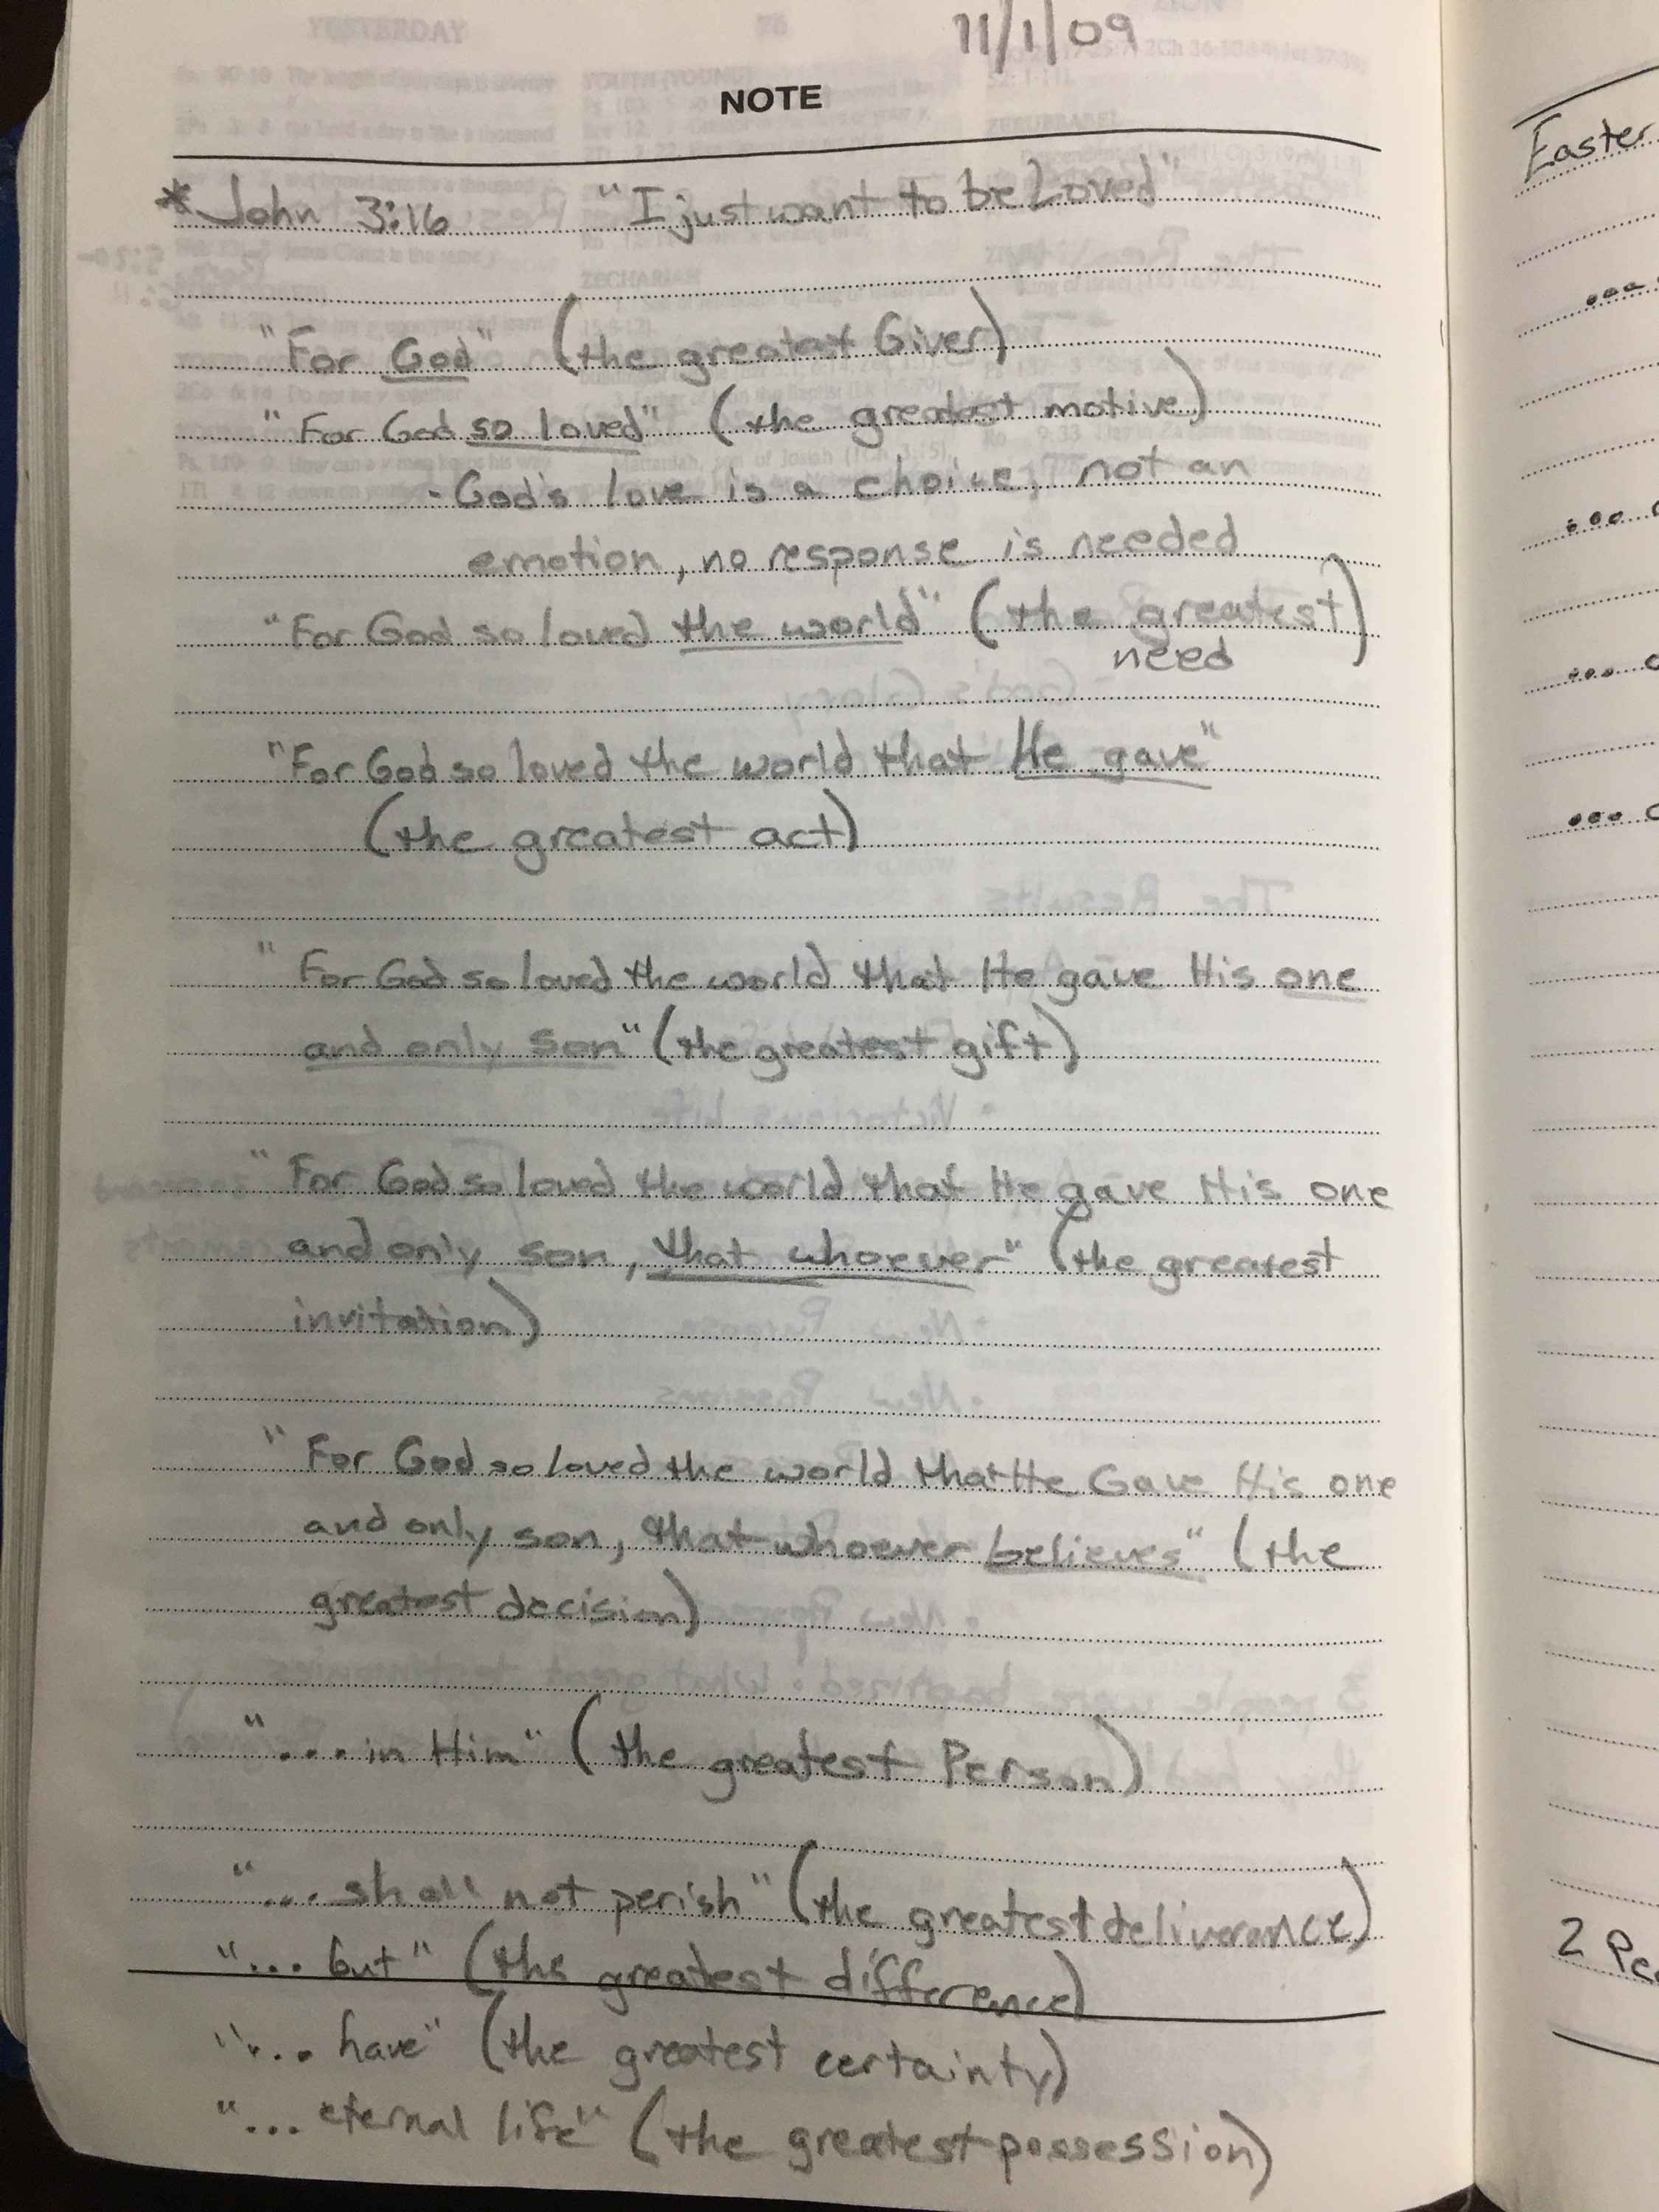 11/1/09
NOTE
*John 3:16 "I just want to be Loved"
"For God" (the greatest Giver)
"For God so loved" (the greatest motive)
- God's love is a choice, not an
emotion, no response is needed
"For God so loved the world" (the greatest
need)
"For God so loved the world that He gave"
(the greatest act)
"For God so loved the world that He gave His one
and only son" (the greatest gift)
"For God so loved the world that He gave His one
and only son, that whoever" (the greatest
invitation)
"For God so loved the world that He Gave His one
and only son, that whoever believes" (the
greatest decision)
"... in Him" (the greatest Person)
"... shall not perish" (the greatest deliverance)
"... but" (the greatest difference)
"... have" (the greatest certainty)
"... eternal life" (the greatest possession)
Easter
2